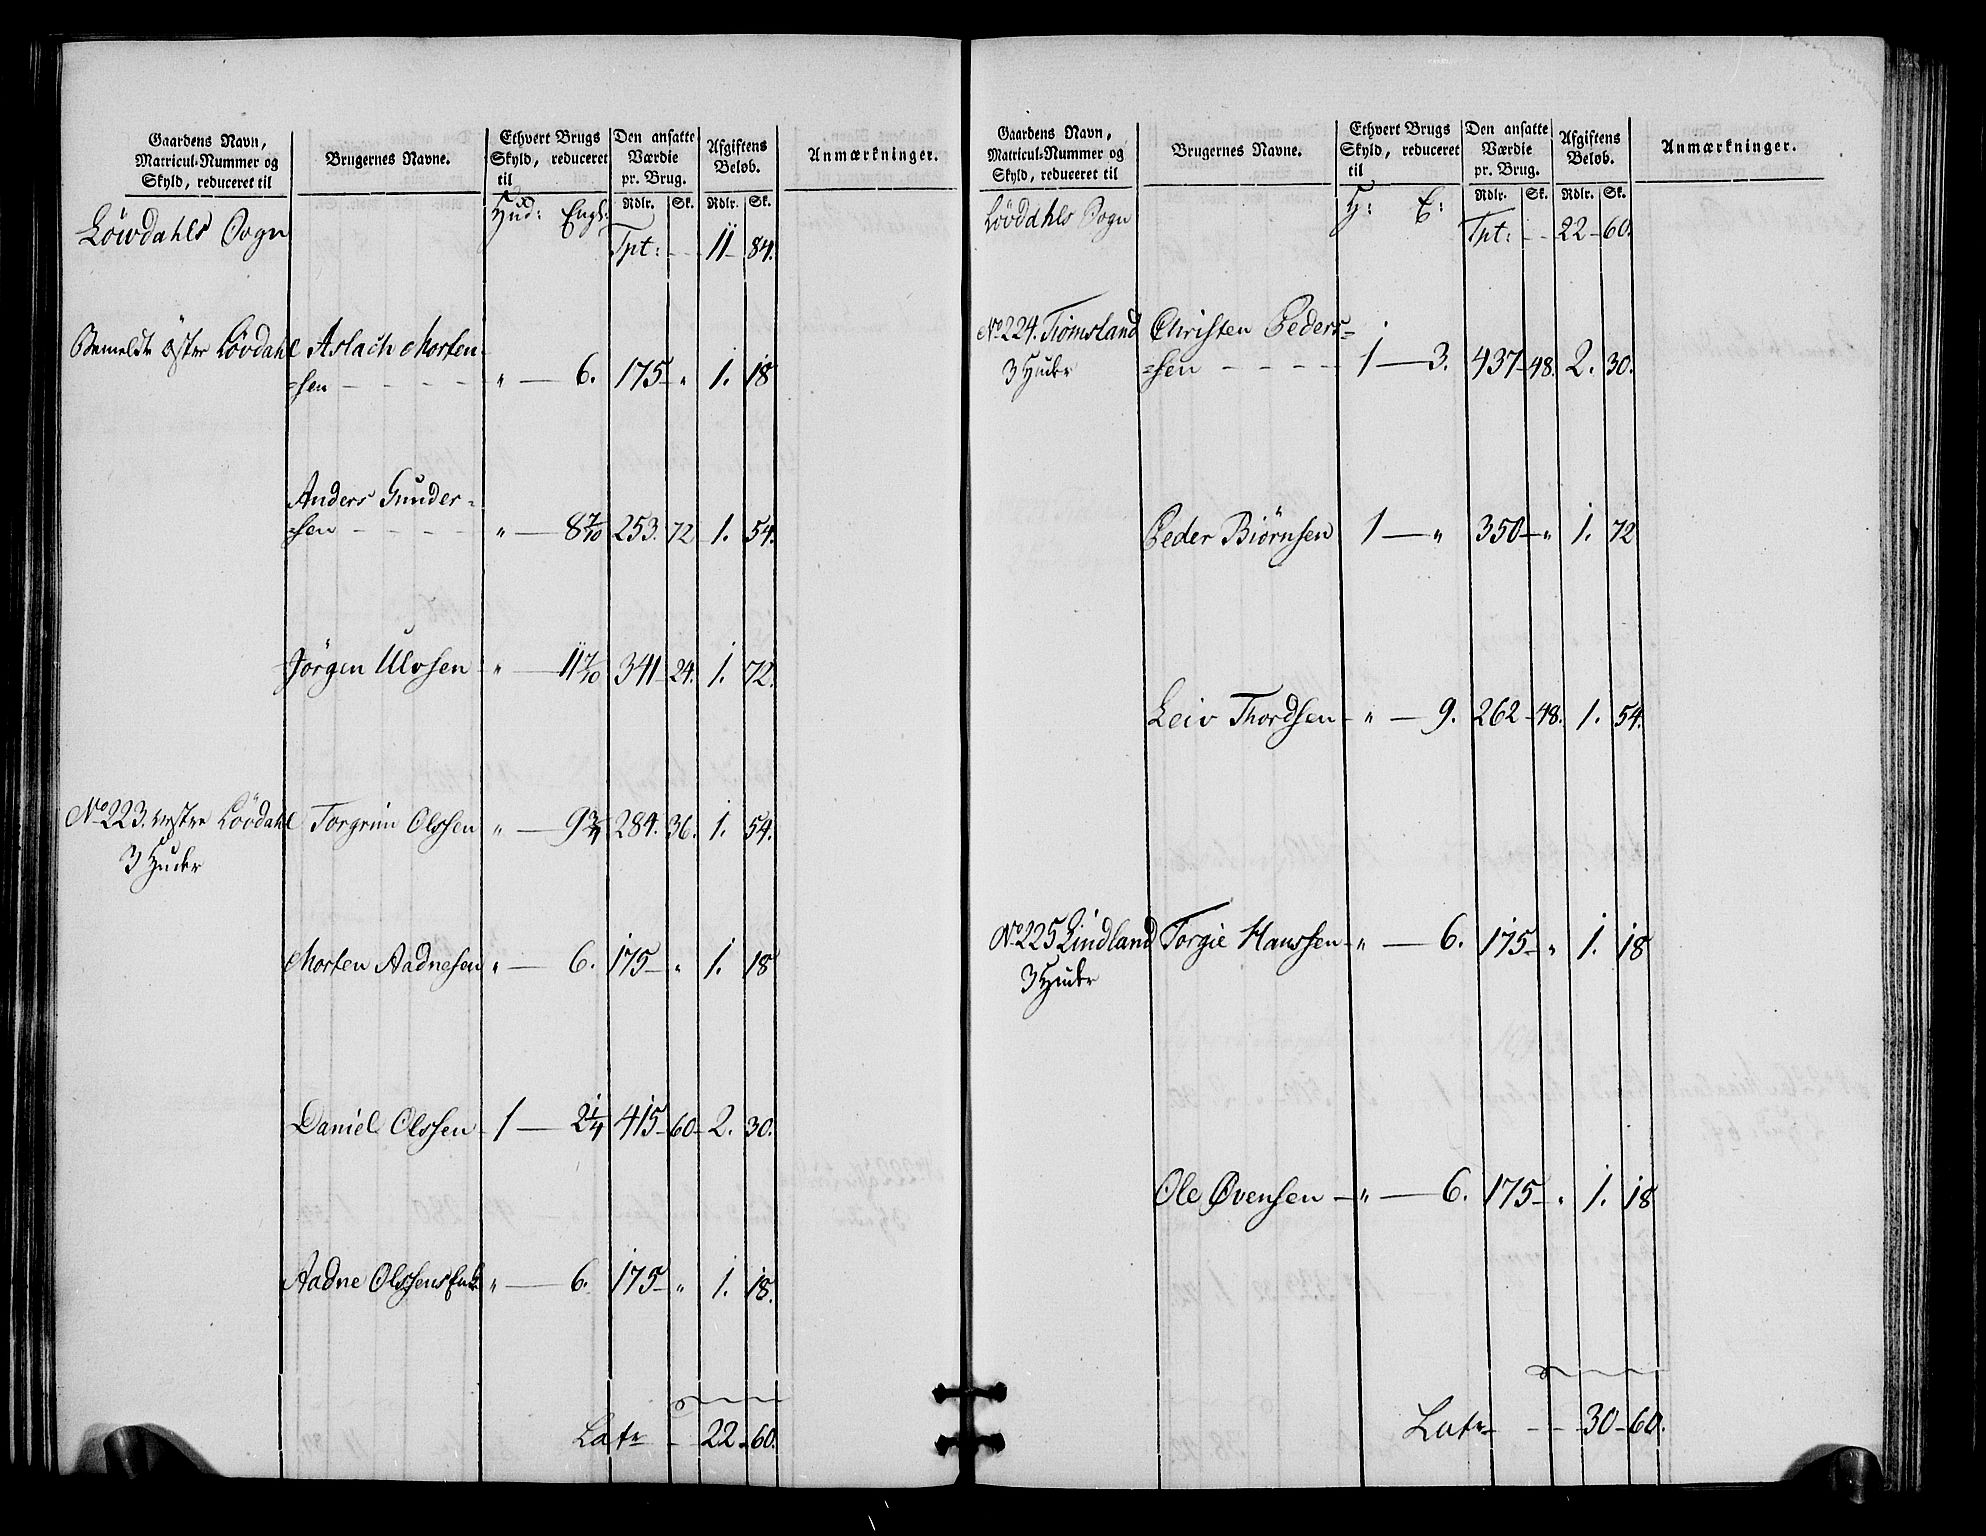 Gaardens Navn, Matricul-Nummer og Skyld, reduceret til | Brugernes Navne. | Ethvert Brugs Skyld, reduceret til | Den ansatte Værdie pr. Brug. | Afgiftens Beløb. | Anmærkninger.
Hud: Engl: Rdlr. Sk. Rdlr. Sk.
Löwdahls Sogn Tpt: - - 11 - 84.
Bemeldte Öster Lövdahl Aslach Morten-
=sen - - - - - " — 6. 175 - " 1. 18
Anders Gunder=
=sen - - - - " — 8 7/10 253. 72 1. 54.
Jörgen Ulvsen " — 11 7/10 341 - 24. 1. 72.
No 223. vestre Lövdahl Torgrim Olssen " — 9 3/4 284. 36. 1. 54.
3 Huder
Morten Aadnesen " — 6. 175 - " 1. 18
Daniel Olssen - 1 — 2 1/4 415 - 60 - 2. 30.
Aadne Olssens Enke " — 6. 175 - " 1. 18.
Latr - - 22 - 60.
Gaardens Navn, Matricul-Nummer og Skyld, reduceret til | Brugernes Navne. | Ethvert Brugs Skyld, reduceret til | Den ansatte Værdie pr. Brug. | Afgiftens Beløb. | Anmærkninger.
H: E: Rdlr. Sk. Rdlr. Sk.
Lövdahls Sogn Tpt: - - 22 - 60.
No 224. Tiomsland Christen Peders=
3 Huder =sen - - - - 1 — 3. 437 - 48. 2. 30.
Peder Biørnsen 1 — " 350 - " 1. 72
Leiv Thordsen - " — 9. 262 - 48. 1. 54.
No 225 Lindland Torgie Hanssen - " — 6. 175 - " 1. 18
3 Huder
Ole Øvensen - " — 6. 175 - " 1. 18
Latr - - 30 - 60.